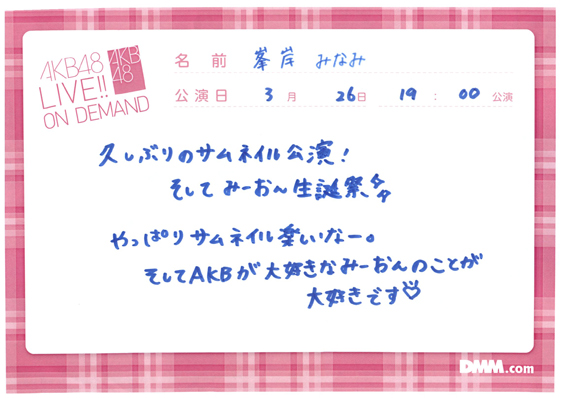 AKB48
LIVE!!
ON DEMAND
AKB
48
名前 峯岸 みなみ
公演日 3月 26日 19:00 公演
久しぶりのサムネイル公演!
そしてみーおん生誕祭
やっぱりサムネイル楽しいなー。
そしてAKBが大好きなみーおんのことが
大好きです♡
DMM.com